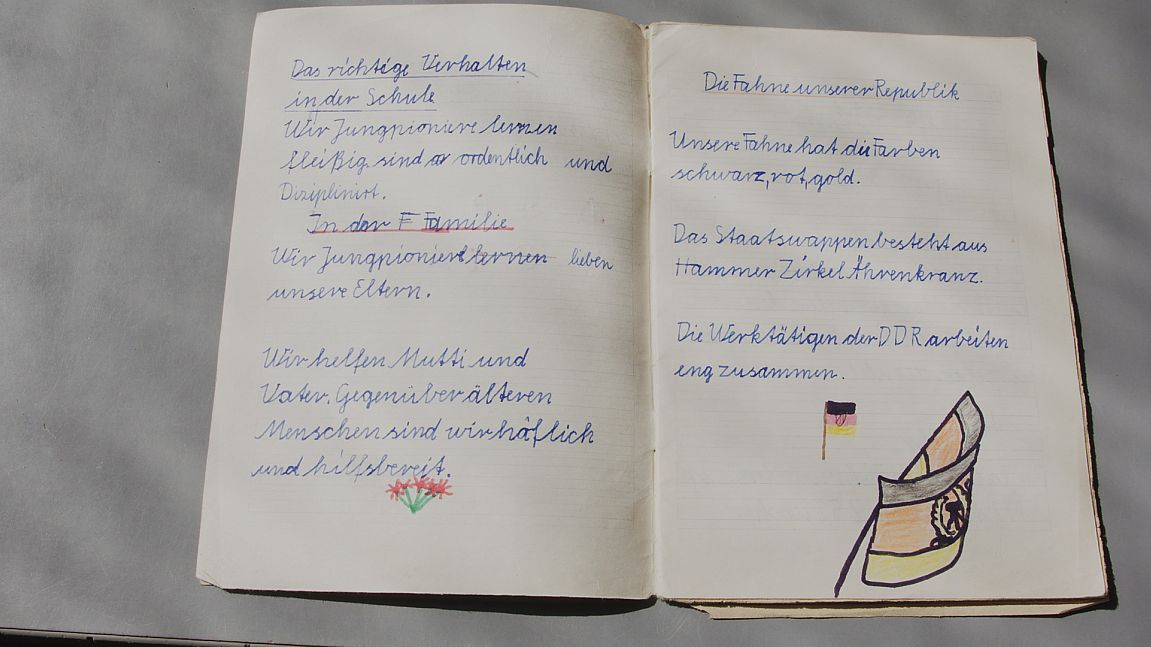 Das richtige Verhalten
in der Schule
Wir Jungpioniere lernen
fleißig, sind or ordentlich und
Diziplinirt.
In der F Familie
Wir Jungpioniere lernen lieben
unsere Eltern.
Wir helfen Mutti und
Vater. Gegenüber älteren
Menschen sind wir höflich
und hilfsbereit.
Die Fahne unserer Republik
Unsere Fahne hat die Farben
schwarz, rot, gold.
Das Staatswappen besteht aus
Hammer Zirkel Ährenkranz.
Die Werktätigen der DDR arbeiten
eng zusammen.